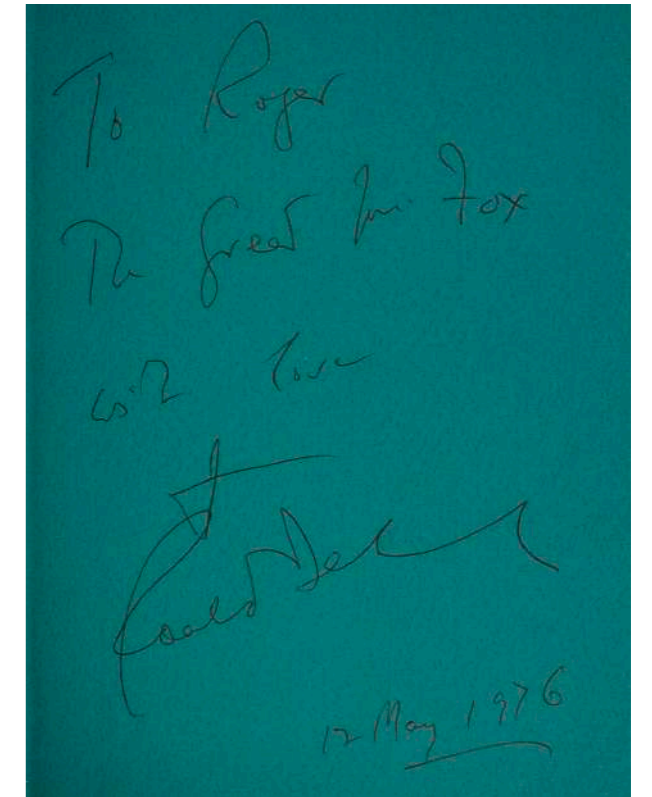 To Roger
The Great Mr. Fox
with love
Roald Dahl
12 May 1976